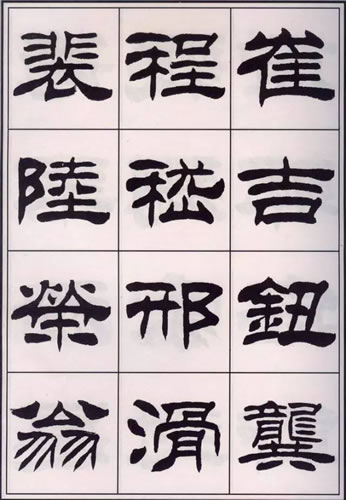 崔吉鈕龔
程嵇邢滑
裴陸榮翁